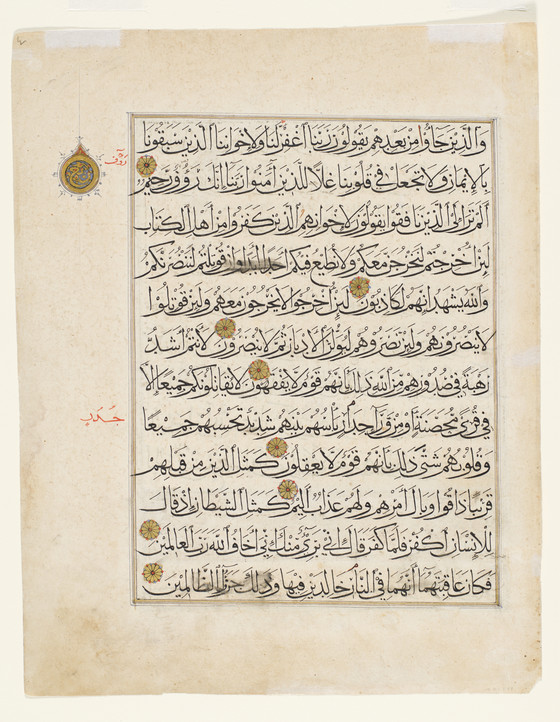 والذين جاؤا من بعدهم يقولون ربنا اغفر لنا ولاخواننا الذين سبقونا
بالايمان ولا تجعل في قلوبنا غلا للذين آمنوا ربنا انك رؤوف رحيم
رؤف
الم تر الى الذين نافقوا يقولون لاخوانهم الذين كفروا من اهل الكتاب
لئن اخرجتم لنخرجن معكم ولا نطيع فيكم احدا ابدا وان قوتلتم لننصرنكم
والله يشهد انهم لكاذبون لئن اخرجوا لا يخرجون معهم ولئن قوتلوا
لا ينصرونهم ولئن نصروهم ليولن الادبار ثم لا ينصرون لانتم اشد
رهبة في صدورهم من الله ذلك بانهم قوم لا يفقهون لا يقاتلونكم جميعا الا
في قرى محصنة او من وراء جدار باسهم بينهم شديد تحسبهم جميعا
جدر
وقلوبهم شتى ذلك بانهم قوم لا يعقلون كمثل الذين من قبلهم
قريبا ذاقوا وبال امرهم ولهم عذاب اليم كمثل الشيطان اذ قال
للانسان اكفر فلما كفر قال اني بريء منك اني اخاف الله رب العالمين
فكان عاقبتهما انهما في النار خالدين فيها وذلك جزاء الظالمين